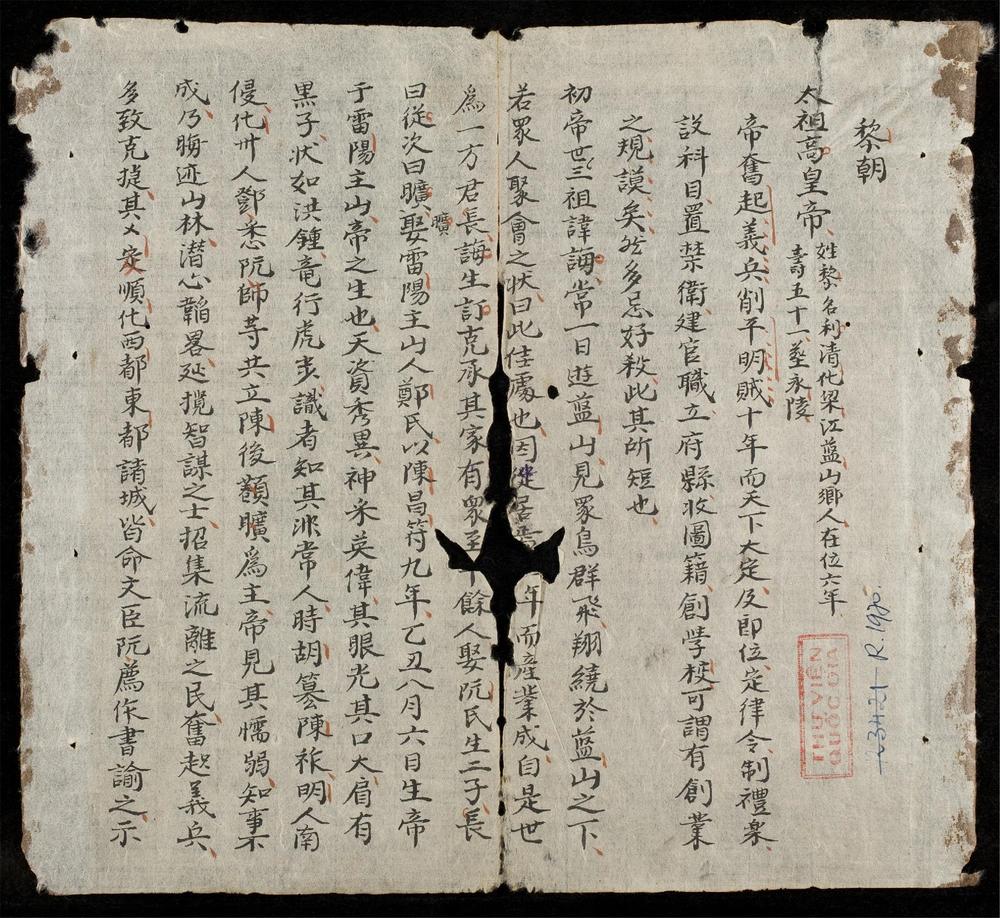 黎朝
太祖高皇帝
姓黎名利清化梁江藍山鄉人在位六年
壽五十一葬永陵
帝奮起義兵削平明賊十年而天下大定及即位定律令制禮樂
設科目置禁衛建官職立府縣收圖籍創學校可謂有創業
之規謨矣然多忌好殺此其所短也
初帝世三祖諱誨常一日遊藍山見眾鳥群飛翔繞於藍山之下
若眾人聚會之狀曰此佳處也因徙居焉 年而產業成自是世
為一方君長誨生訂克承其家有眾至千餘人娶阮氏生二子長
曰從次曰曠娶雷陽主山人鄭氏以陳昌符九年乙丑八月六日生帝
曠
于雷陽主山帝之生也天資秀異神采英偉其眼光其口大肩有
黑子狀如洪鍾竜行虎步識者知其非常人時胡篡陳祚明人南
侵化卅人鄧悉阮師等共立陳後顧曠為主帝見其懦弱知事不
成乃晦迹山林潛心韜畧延攬智謀之士招集流離之民奮起義兵
多致克捷其 愛順化西都東都諸城皆命文臣阮薦作書諭之示
THƯ VIỆN
QUỐC GIA
R.1970